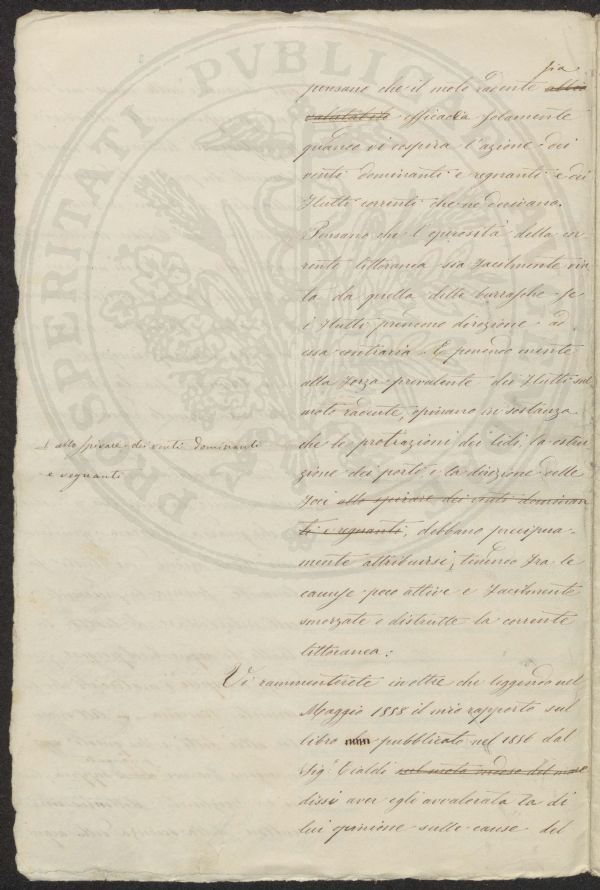 sia
pensano che il moto radente abbia
valutabile efficacia solamente
quando vi cospira l'azione dei
venti dominanti e regnanti e dei
flutti correnti che ne derivano.
Pensano che l'operosità della cor
rente littoranea sia facilmente vin
ta da quella delle burrasche se
i flutti prendono direzione ad
essa contraria. E ponendo mente
alla forza prevalente dei flutti sul
moto radente, opinano in sostanza
che le protrazioni dei lidi, la ostru
zione dei porti e la direzione delle
foci allo spirare dei venti dominan
ti e regnanti, debbano precipua-
mente attribuirsi, tenendo fra le
cause poco attive e facilmente
smorzate e distrutte la corrente
littoranea:
allo spirare dei venti dominanti
e regnanti
Vi rammenterete inoltre che leggendo nel
Maggio 1858 il mio rapporto sul
libro pubblicato nel 1856 dal
Sig.r Cialdi sul moto ondoso del mare
dissi aver egli avvalorata la di
lui opinione sulle cause del
PROSPERITATI PVBLICAE